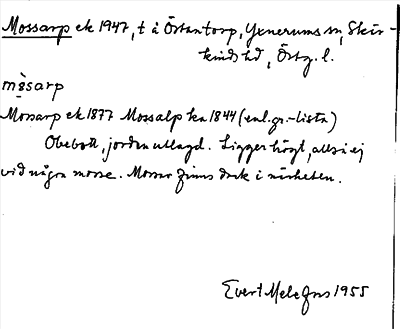 Mossarp ek 1947, t å Östentorp, Yxnerums sn, Skär-
kinds hd, Östg. l.
mòsarp
Mossarp ek 1877 Mossalp ka 1844 (enl. gr.-lista)
Obebott, jorden utlagd. Ligger högt, alltså ej
vid någon mosse. Mossar finns dock i närheten.
Evert Melefors 1955